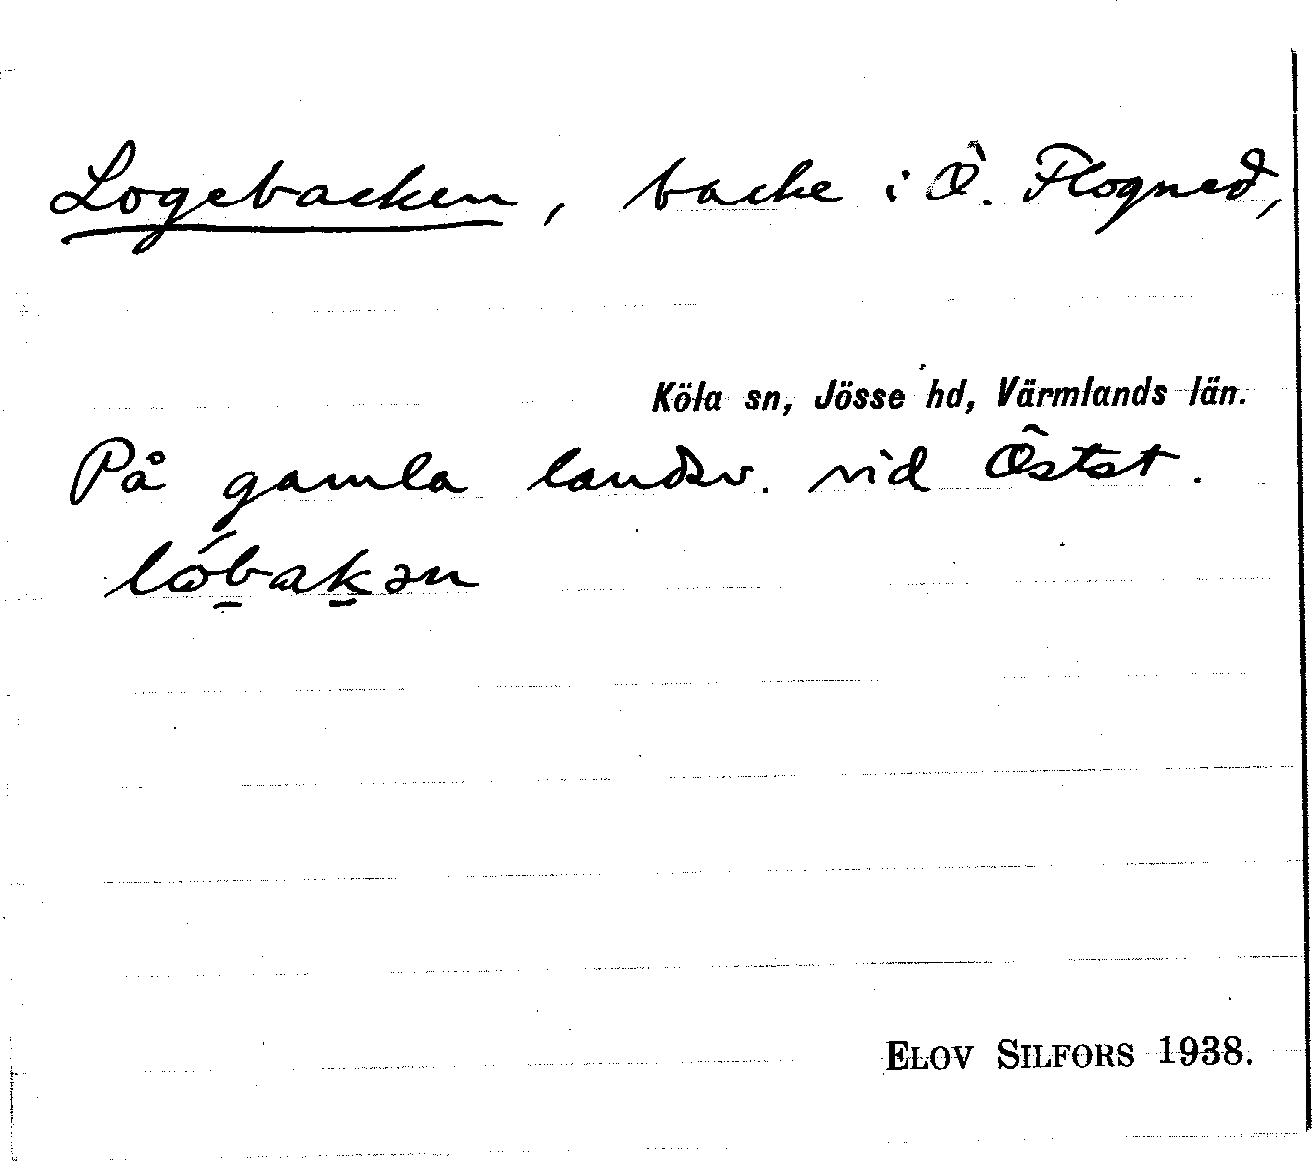 Logebacken, backe i Ö. Flogned,
Köla sn, Jösse hd, Värmlands län.
På gamla landsv. vid Östst.
lóbakən
ELOV SILFORS 1938.